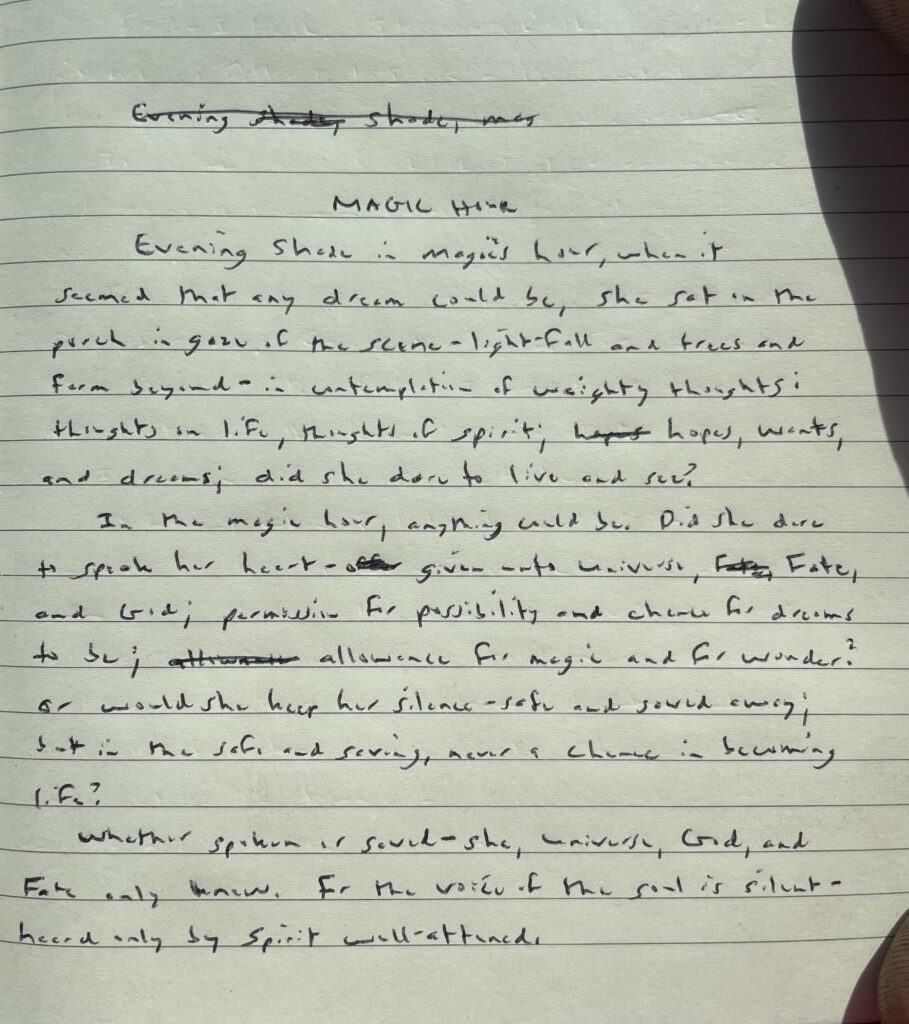 Evening shade, shade, mag
MAGIC HOUR
Evening shade in magic's hour, when it
seemed that any dream could be, she sat on the
porch in gaze of the scene - light-fall and trees and
farm beyond - in contemplation of weighty thoughts:
thoughts on life, thoughts of spirit; hopes hopes, wants,
and dreams; did she dare to live and see?
In the magic hour, anything could be. Did she dare
to speak her heart - given unto universe, Fate, Fate,
and God; permission for possibility and chance for dreams
to be; allowance allowance for magic and for wonder?
or would she keep her silence - safe and saved away;
but in the safe and saving, never a chance in becoming
life?
Whether spoken or saved - she, universe, God, and
Fate only knew. For the voice of the soul is silent -
heard only by spirit well-attuned.